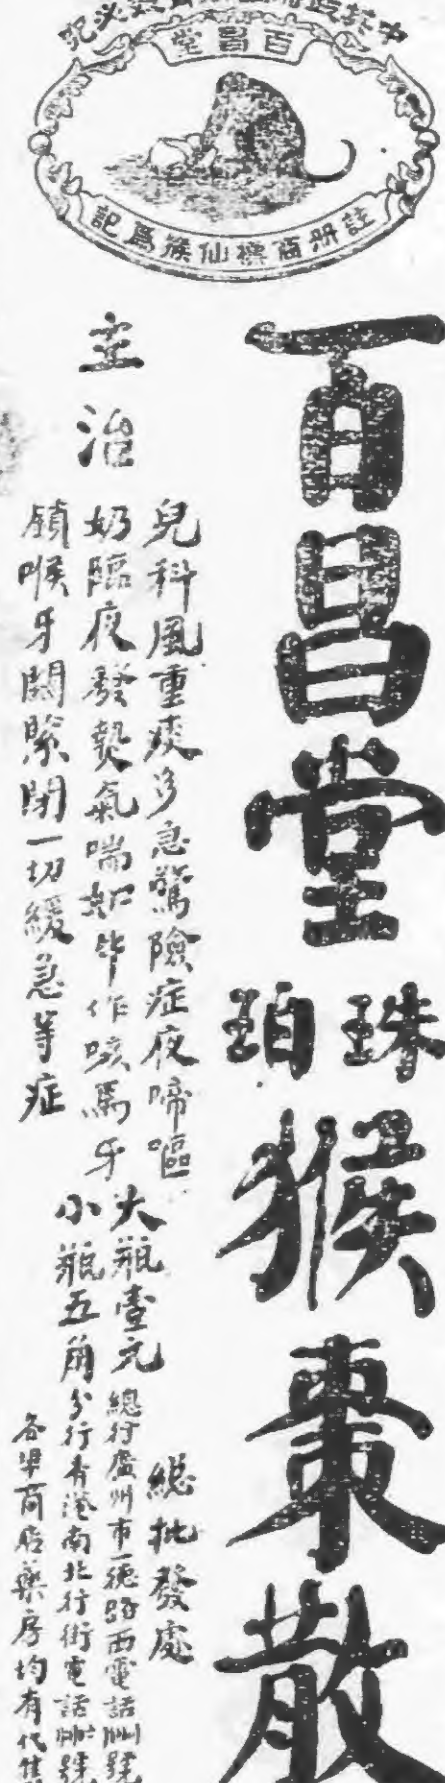 百昌堂
註册商標仙猴為記
百昌堂
珠珀
猴棗散
主治
兒科風重痰多急驚險症夜啼嘔
奶臨夜發熱氣喘如牛作咳馬牙
鎖喉牙關緊閉一切緩急等症
大瓶壹元
小瓶五角
總批發處
總行廣州市一德路西電話 號
分行香港南北行街電話 號
各埠商店藥房均有代售